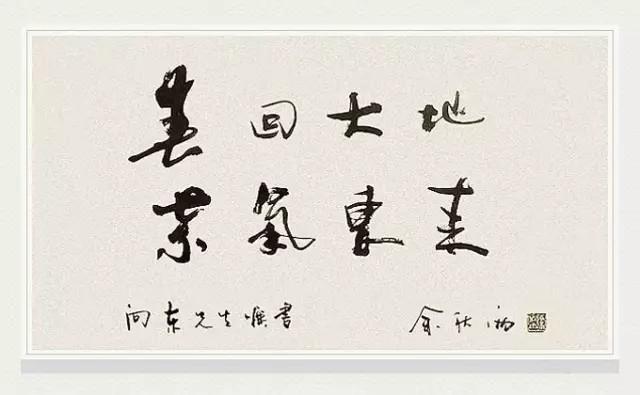 春回大地
紫氣東来
向東先生嘱書
余秋雨